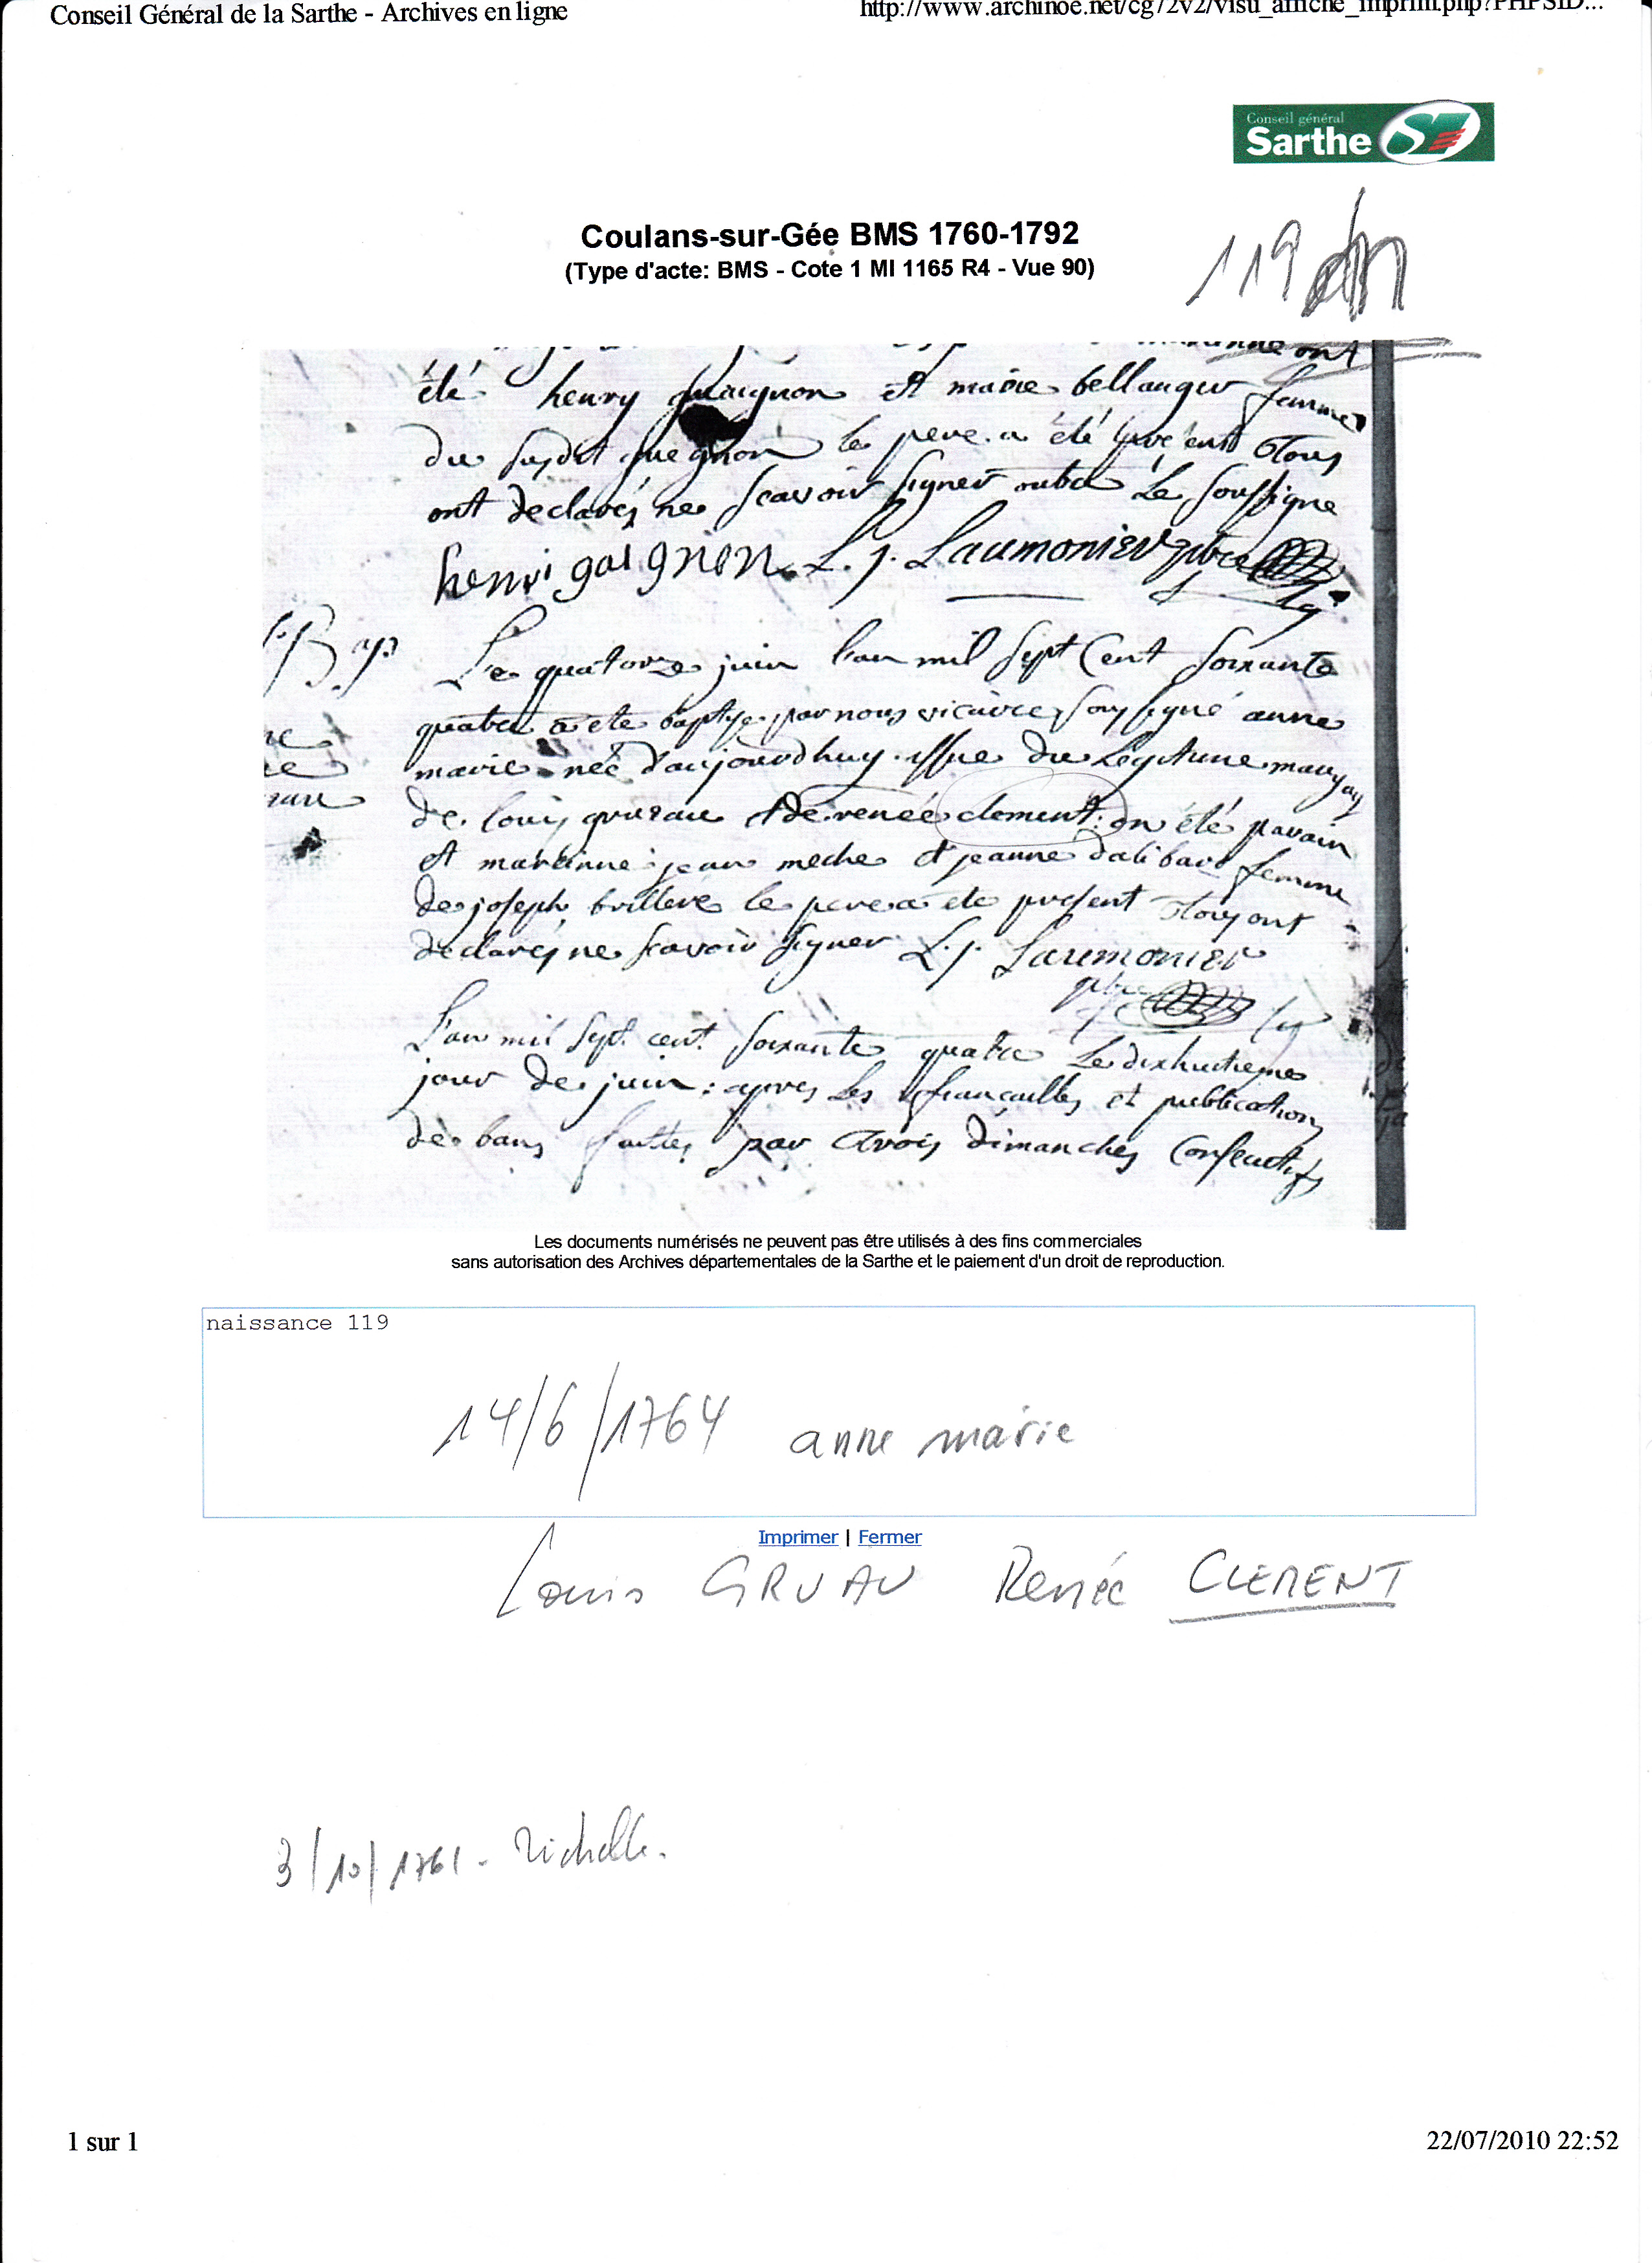 Conseil Général de la Sarthe - Archives en ligne
http://www.archinoe.net/cg72v2/visu_affiche_imprim.php?PHPSID...
Conseil général
Sarthe
Coulans-sur-Gée BMS 1760-1792
(Type d'acte: BMS - Cote 1 MI 1165 R4 - Vue 90)
119
ont
été henry guaignon et marie bellanger femme
du susdit guegnon le pere a été present tous
ont declarés ne scavoir signer outre le soussigne
henri gaignon L. J. Laumonier ptre
Le quatorze juin l'an mil sept cent soixante
quatre a ete baptise par nous vicaire soussigné anne
marie née d'aujourdhuy issue du legitime mariage
de louis gruau et de renée clement: on été parain
et maraine jean meche et jeanne dalibard femme
de joseph brillere le pere a ete present tous ont
declarés ne scavoir signer L. J. Laumonier
ptre
L'an mil sept cent soixante quatre le dixhuitieme
jour de juin: apres les fiançailles et publications
de bans faittes par trois dimanches consecutifs
Les documents numérisés ne peuvent pas être utilisés à des fins commerciales
sans autorisation des Archives départementales de la Sarthe et le paiement d'un droit de reproduction.
naissance 119
14/6/1764 anne marie
Imprimer | Fermer
Louis GRUAU Renée CLEMENT
3/10/1761 -
1 sur 1
22/07/2010 22:52